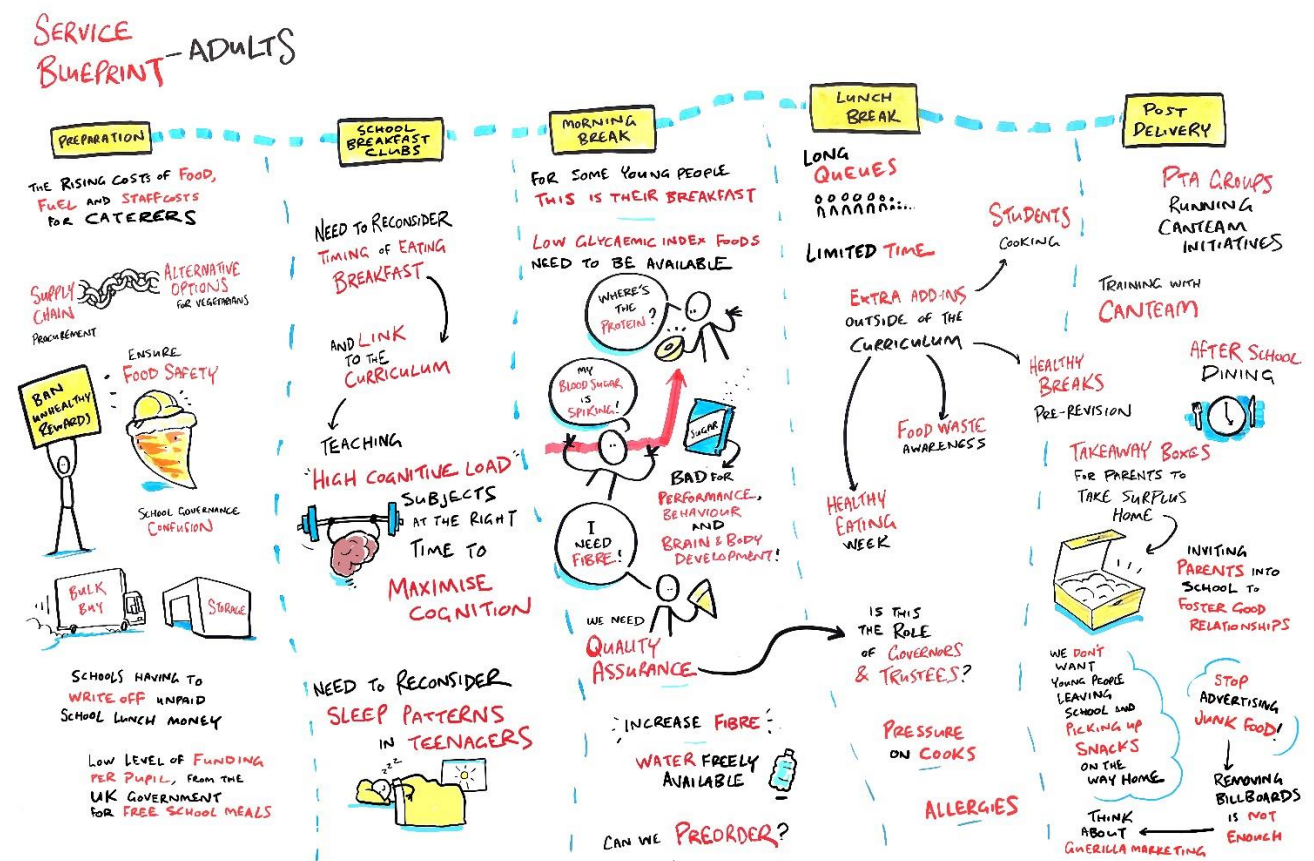 SERVICE
BLUEPRINT - ADULTS
PREPARATION
THE RISING COSTS OF FOOD,
FUEL AND STAFF COSTS
FOR CATERERS
SUPPLY
CHAIN
PROCUREMENT
ALTERNATIVE
OPTIONS
FOR VEGETARIANS
BAN
UNHEALTHY
REWARDS
ENSURE
FOOD SAFETY
SCHOOL GOVERNANCE
CONFUSION
BULK
BUY
STORAGE
SCHOOLS HAVING TO
WRITE OFF UNPAID
SCHOOL LUNCH MONEY
LOW LEVEL OF FUNDING
PER PUPIL, FROM THE
UK GOVERNMENT
FOR FREE SCHOOL MEALS
SCHOOL
BREAKFAST
CLUBS
NEED TO RECONSIDER
TIMING OF EATING
BREAKFAST
AND LINK
TO THE
CURRICULUM
TEACHING
"HIGH COGNITIVE LOAD"
SUBJECTS
AT THE RIGHT
TIME TO
MAXIMISE
COGNITION
NEED TO RECONSIDER
SLEEP PATTERNS
IN TEENAGERS
ZZZ
MORNING
BREAK
FOR SOME YOUNG PEOPLE
THIS IS THEIR BREAKFAST
LOW GLYCAEMIC INDEX FOODS
NEED TO BE AVAILABLE
WHERE'S
THE
PROTEIN?
MY
BLOOD SUGAR
IS
SPIKING!
SUGAR
BAD FOR
PERFORMANCE,
BEHAVIOUR
AND
BRAIN & BODY
DEVELOPMENT!
I
NEED
FIBRE!
WE NEED
QUALITY
ASSURANCE
INCREASE FIBRE
WATER FREELY
AVAILABLE
CAN WE PREORDER?
LUNCH
BREAK
LONG
QUEUES
LIMITED TIME
EXTRA ADD-INS
OUTSIDE OF THE
CURRICULUM
STUDENTS
COOKING
HEALTHY
BREAKS
PRE-REVISION
FOOD WASTE
AWARENESS
HEALTHY
EATING
WEEK
IS THIS
THE ROLE
OF GOVERNORS
& TRUSTEES?
PRESSURE
ON COOKS
ALLERGIES
POST
DELIVERY
PTA GROUPS
RUNNING
CANTEAM
INITIATIVES
TRAINING WITH
CANTEAM
AFTER SCHOOL
DINING
TAKEAWAY BOXES
FOR PARENTS TO
TAKE SURPLUS
HOME
INVITING
PARENTS INTO
SCHOOL TO
FOSTER GOOD
RELATIONSHIPS
WE DON'T
WANT
YOUNG PEOPLE
LEAVING
SCHOOL AND
PICKING UP
SNACKS
ON THE
WAY HOME
STOP
ADVERTISING
JUNK FOOD!
REMOVING
BILLBOARDS
IS NOT
ENOUGH
THINK
ABOUT
GUERILLA MARKETING